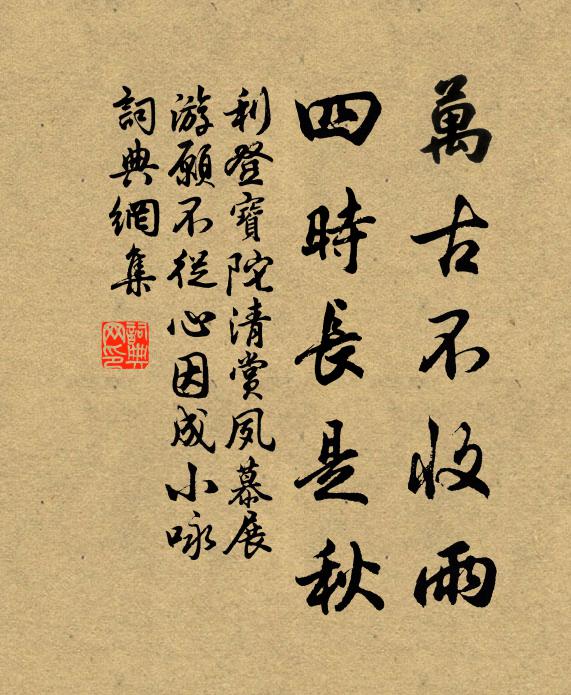 萬古不收雨
四時長是秋
利登寶陀清賞夙慕展
游願不從心因成小咏
詞典網集
詞典
网印